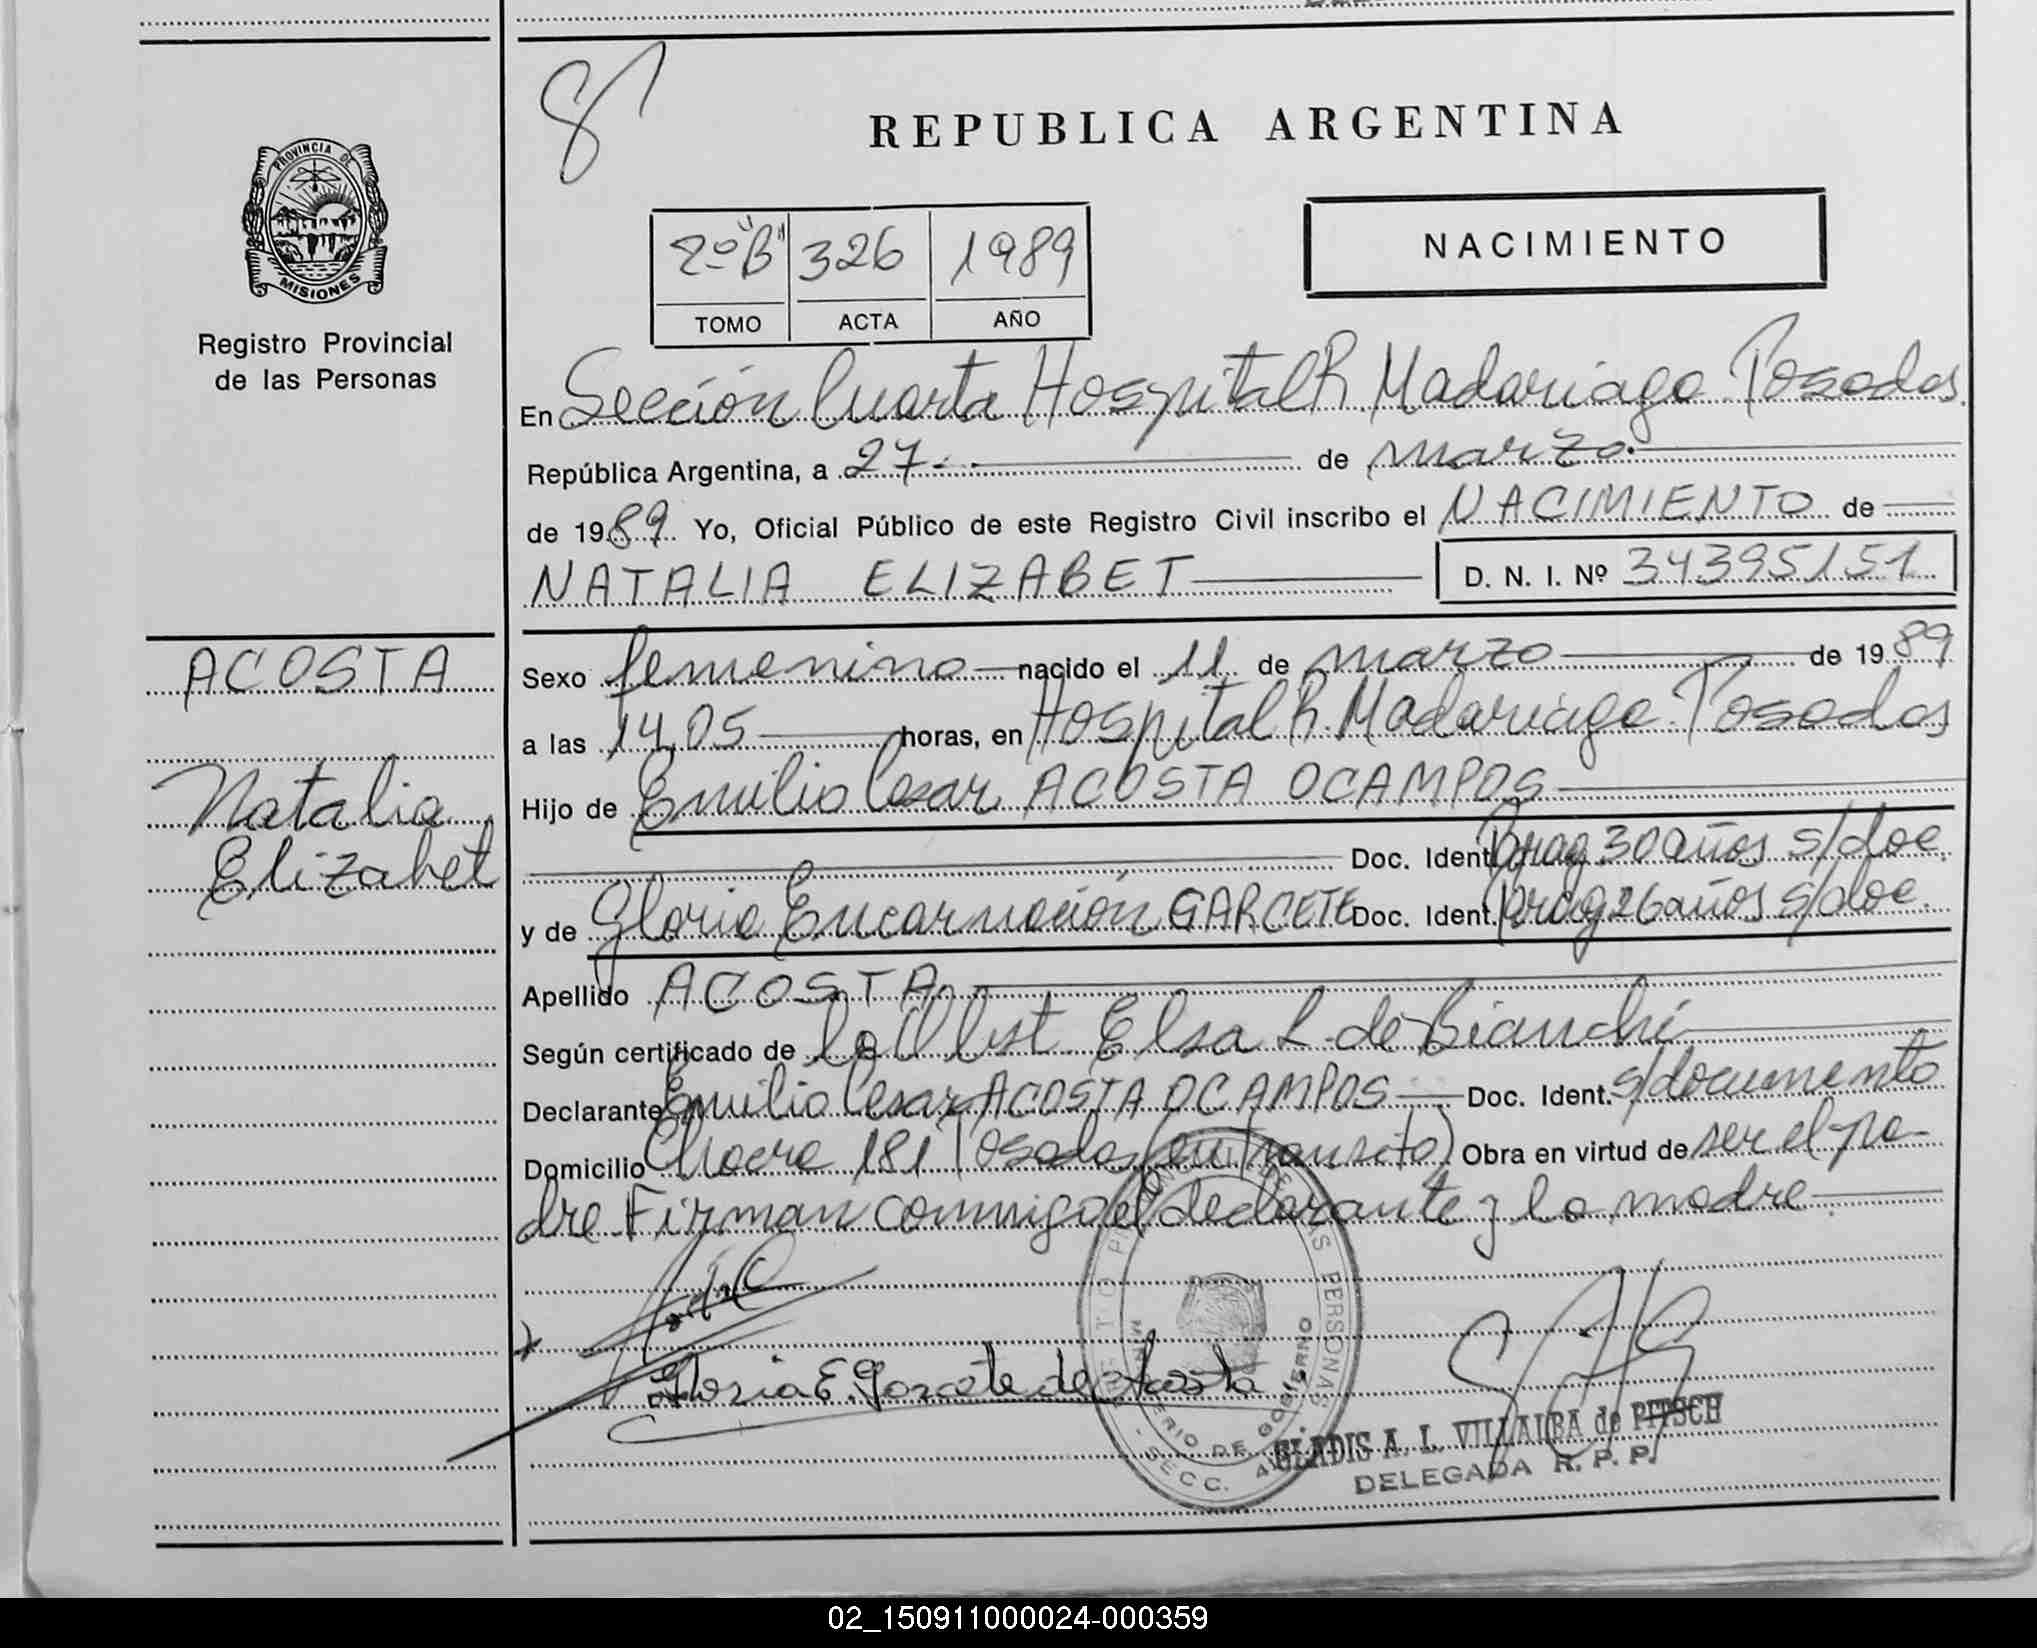 8
REPUBLICA ARGENTINA
PROVINCIA DE
MISIONES
Registro Provincial
de las Personas
2º "B" 326 1989
TOMO ACTA AÑO
NACIMIENTO
En Sección Cuarta Hospital R Madariaga. Posadas.
República Argentina, a 27. de marzo.
de 1989. Yo, Oficial Público de este Registro Civil inscribo el NACIMIENTO de
NATALIA ELIZABET D. N. I. Nº 34395151
ACOSTA
Natalia
Elizabet
Sexo femenino nacido el 11 de marzo de 1989
a las 14,05 horas, en Hospital R. Madariaga. Posadas
Hijo de Emilio Cesar ACOSTA OCAMPOS
Doc. Ident. Prag 30 años s/doc.
y de Gloria Encarnación GARCETE Doc. Ident. Prag 26 años s/doc.
Apellido ACOSTA
Según certificado de la Obst Elsa L. de Bianchi
Declarante Emilio Cesar ACOSTA OCAMPOS Doc. Ident. s/documento
Domicilio Chacra 181 Posadas (en transito) Obra en virtud de ser el pa-
dre Firman conmigo el declarante y la madre.
Gloria E. Garcete de Acosta
PERSONAS
MINISTERIO DE GOBIERNO
SECC.
GLADIS A. L. VILLALBA de PITSCH
DELEGADA R. P. P.
02_150911000024-000359